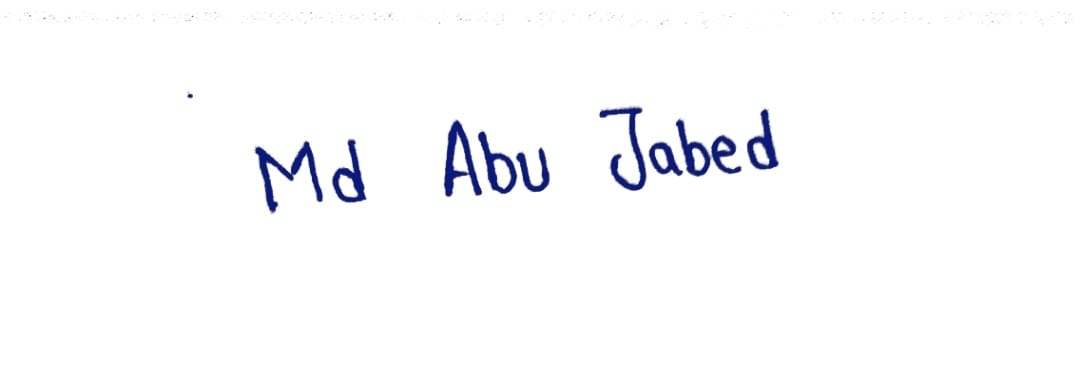 Md Abu Jabed